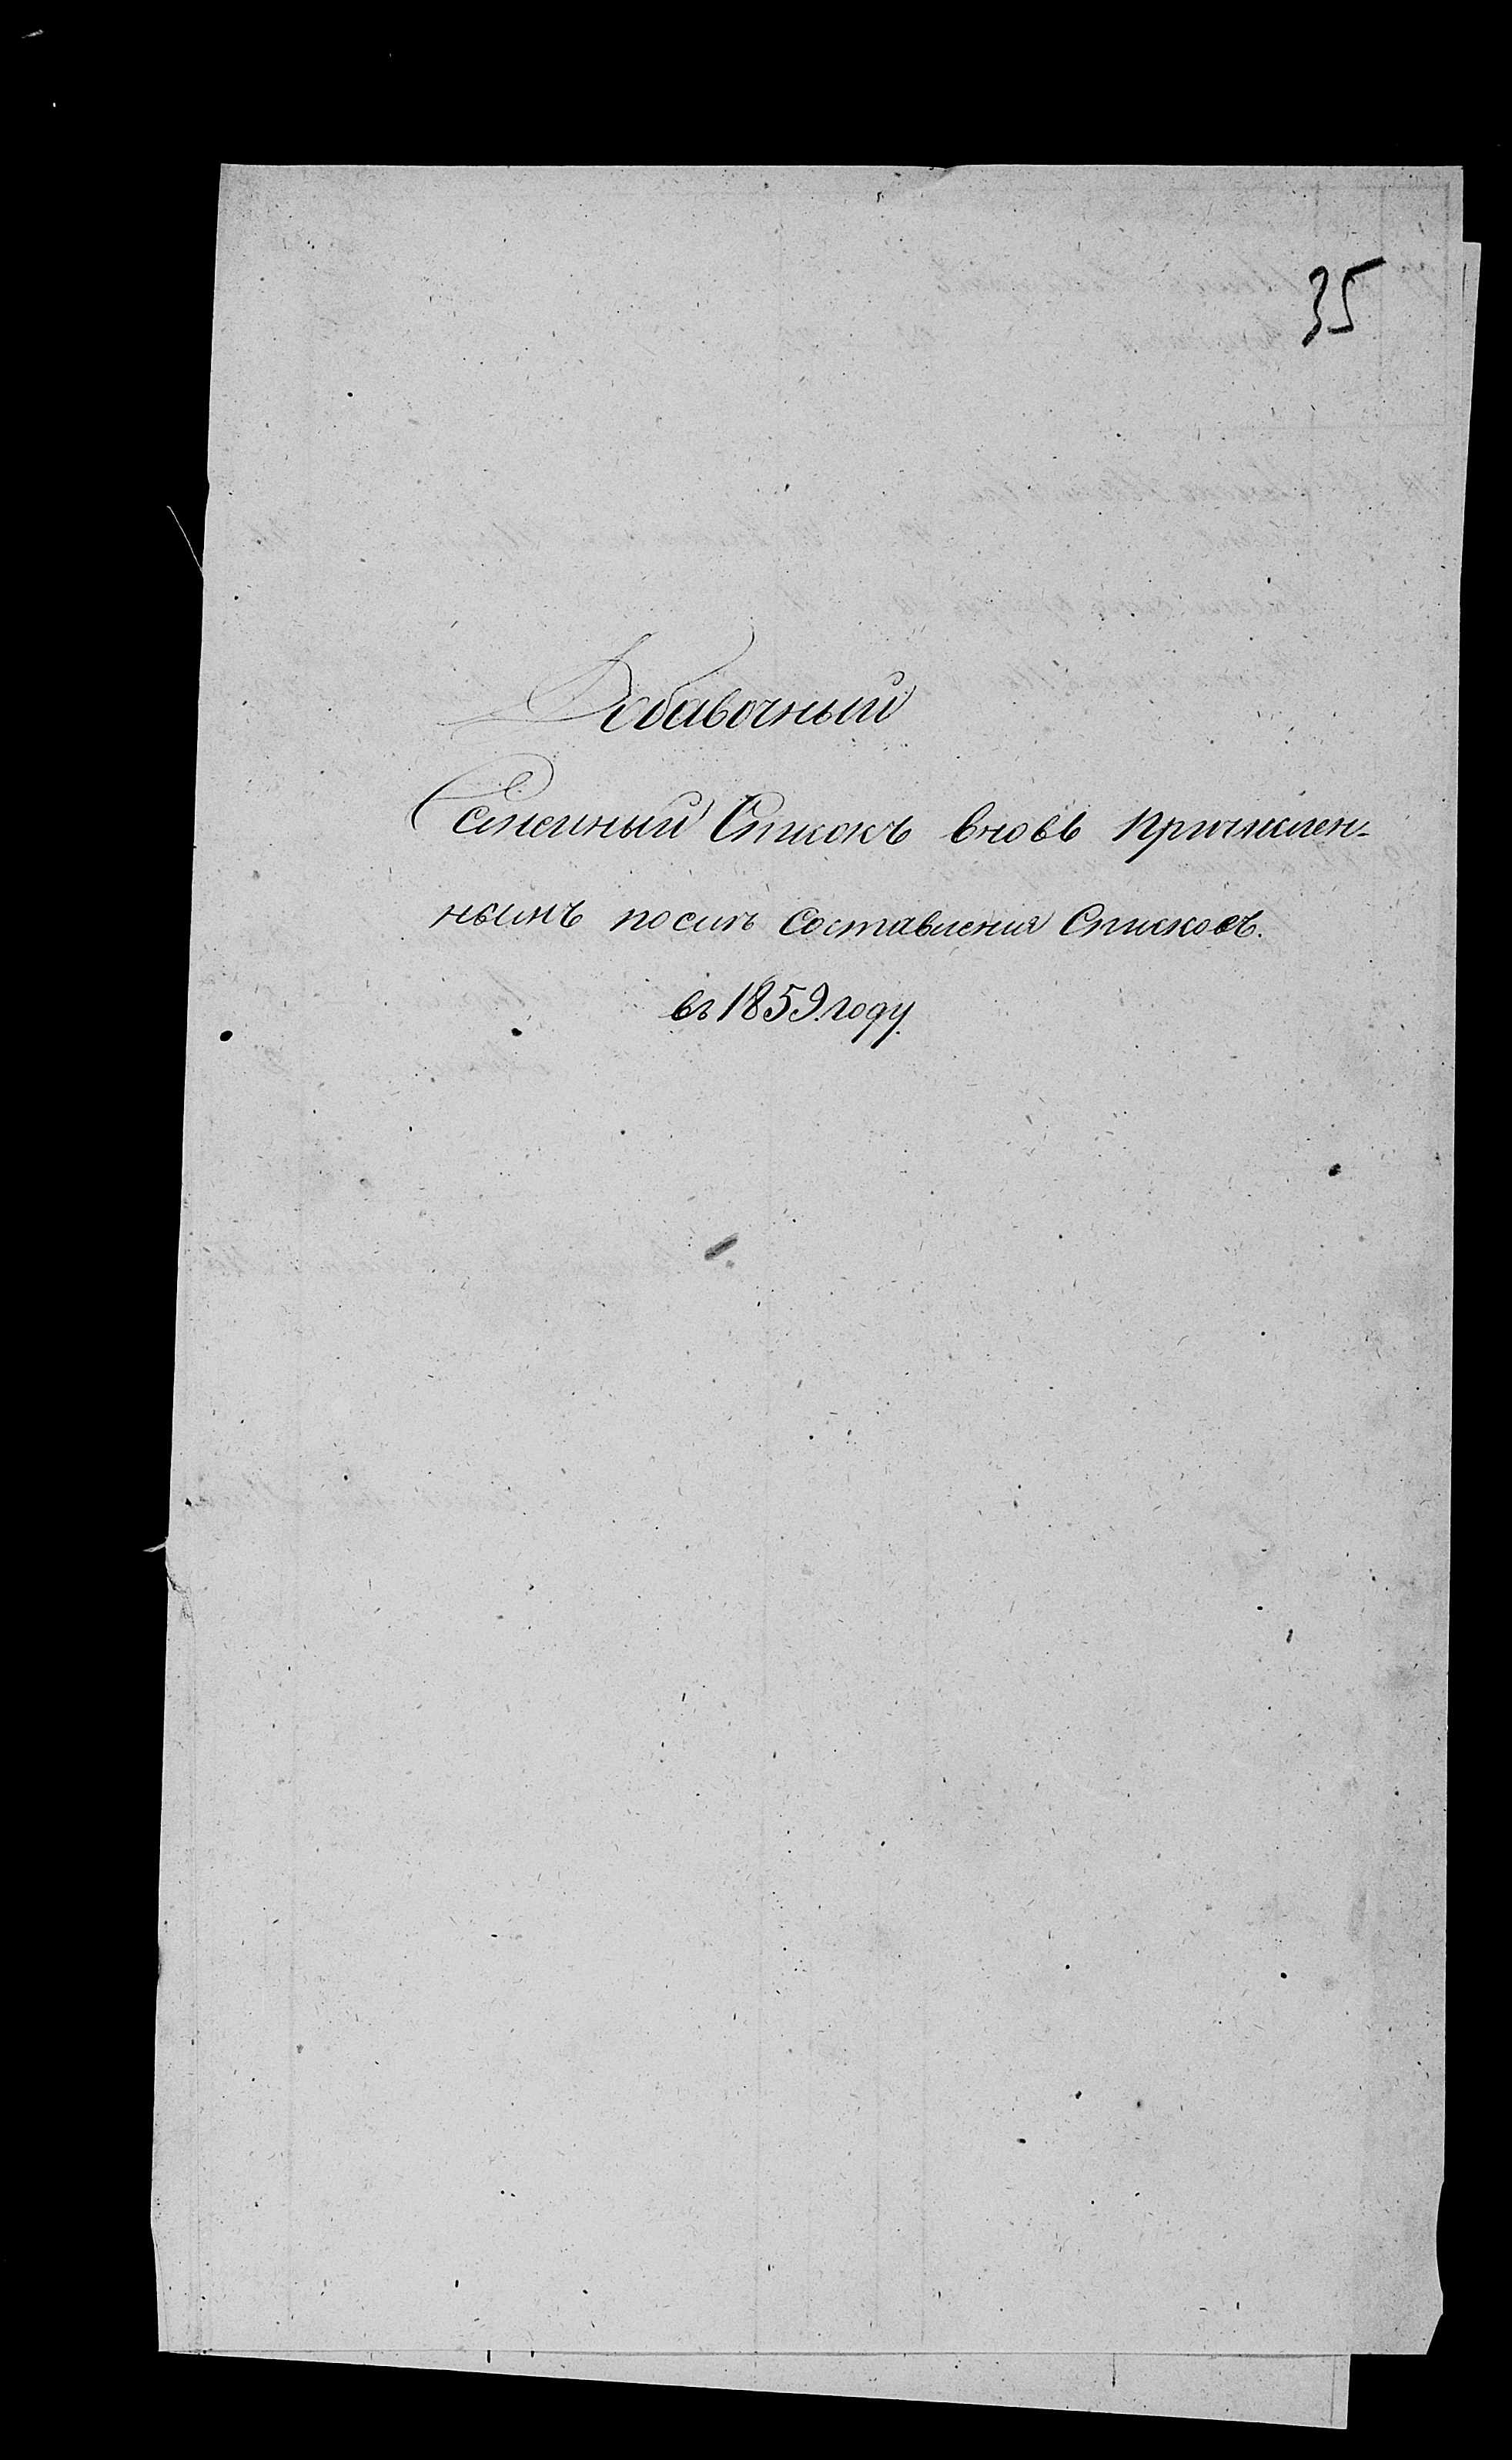 35
Добавочный
Семейный Списокъ вновь причислен-
нымъ после составления Списковъ.
въ 1859. году.